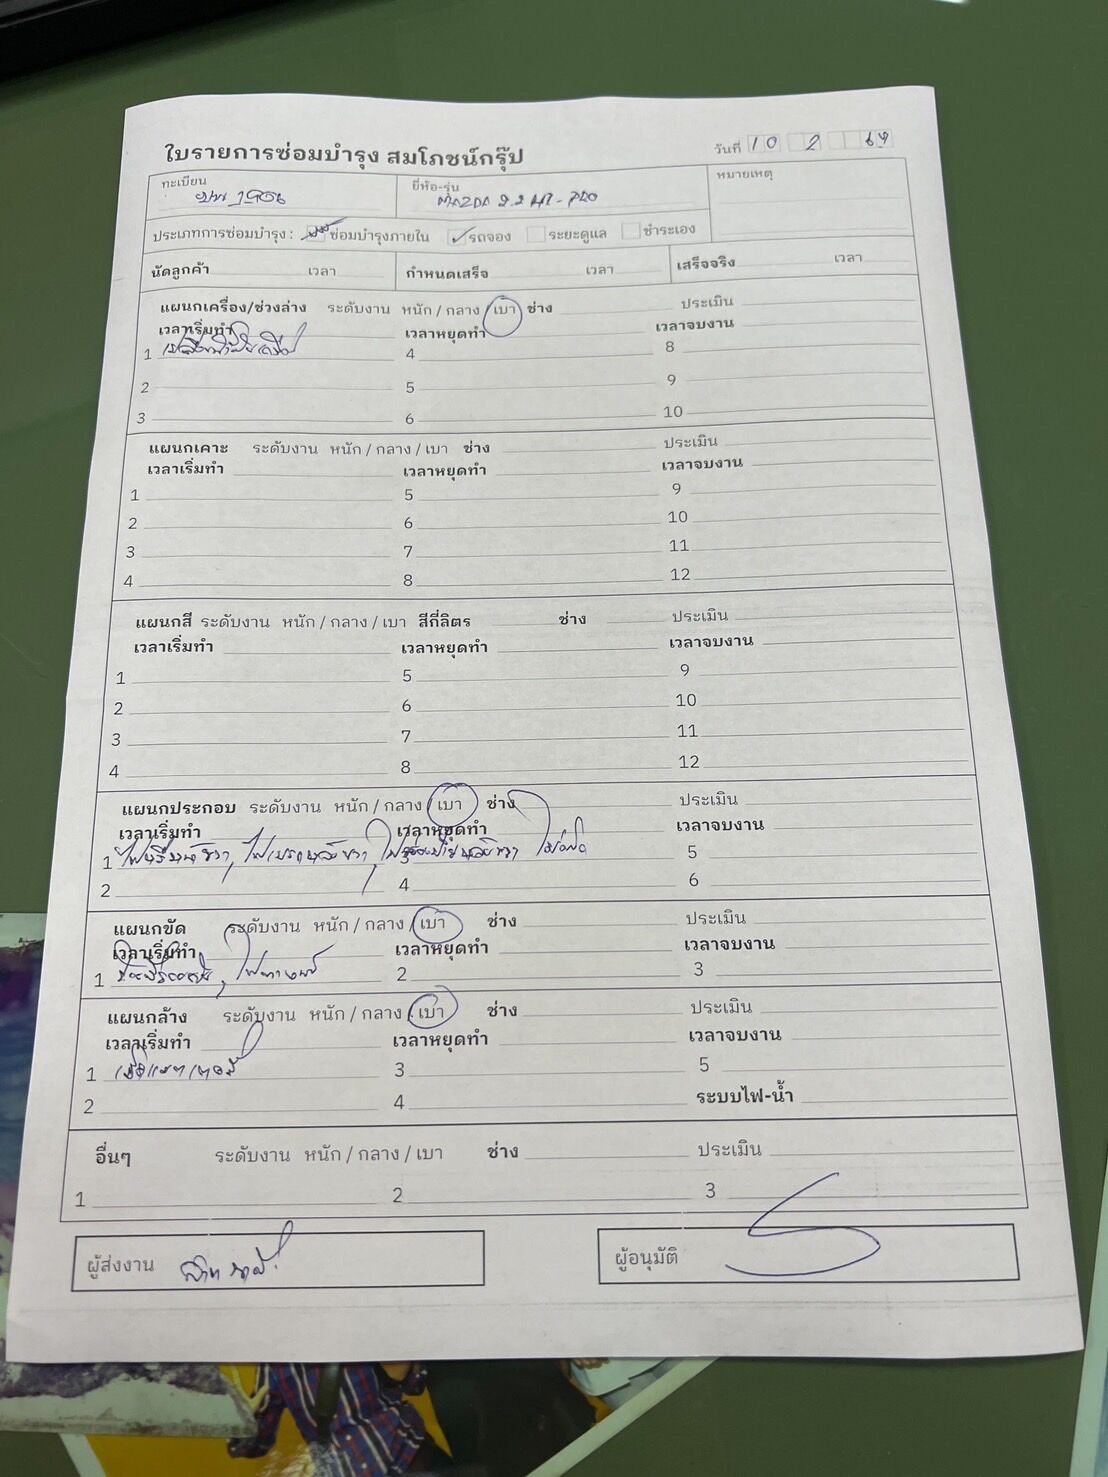 ใบรายการซ่อมบำรุง สมโภชน์กรุ๊ป
วันที่ 10 2 69
ทะเบียน 1906
ยี่ห้อ-รุ่น MAZDA 2.2 HI-PRO
หมายเหตุ
ประเภทการซ่อมบำรุง : ซ่อมบำรุงภายใน รถจอง ระยะดูแล ชำระเอง
นัดลูกค้า เวลา กำหนดเสร็จ เวลา เสร็จจริง เวลา
แผนกเครื่อง/ช่วงล่าง ระดับงาน หนัก / กลาง / เบา ช่าง ประเมิน
เวลาเริ่มทำ เวลาหยุดทำ เวลาจบงาน
1 4 8
2 5 9
3 6 10
แผนกเคาะ ระดับงาน หนัก / กลาง / เบา ช่าง ประเมิน
เวลาเริ่มทำ เวลาหยุดทำ เวลาจบงาน
1 5 9
2 6 10
3 7 11
4 8 12
แผนกสี ระดับงาน หนัก / กลาง / เบา สีกี่ลิตร ช่าง ประเมิน
เวลาเริ่มทำ เวลาหยุดทำ เวลาจบงาน
1 5 9
2 6 10
3 7 11
4 8 12
แผนกประกอบ ระดับงาน หนัก / กลาง / เบา ช่าง ประเมิน
เวลาเริ่มทำ เวลาหยุดทำ เวลาจบงาน
1 ไฟหรี่หน้าขวา, ไฟเบรกหลังขวา, ไม่ติด 5
2 4 6
แผนกขัด ระดับงาน หนัก / กลาง / เบา ช่าง ประเมิน
เวลาเริ่มทำ เวลาหยุดทำ เวลาจบงาน
1 2 3
แผนกล้าง ระดับงาน หนัก / กลาง / เบา ช่าง ประเมิน
เวลาเริ่มทำ เวลาหยุดทำ เวลาจบงาน
1 3 5
2 4 ระบบไฟ-น้ำ
อื่นๆ ระดับงาน หนัก / กลาง / เบา ช่าง ประเมิน
1 2 3
ผู้ส่งงาน
ผู้อนุมัติ